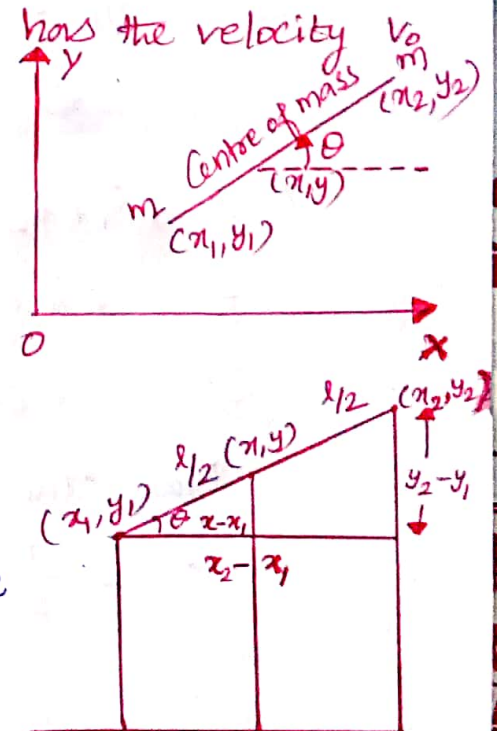 has the velocity v₀
y
m
(x₂, y₂)
Centre of mass
θ
(x, y)
m
(x₁, y₁)
0
x
l/2
(x₂, y₂)
l/2
(x, y)
(x₁, y₁)
θ
x-x₁
y₂-y₁
x₂-x₁